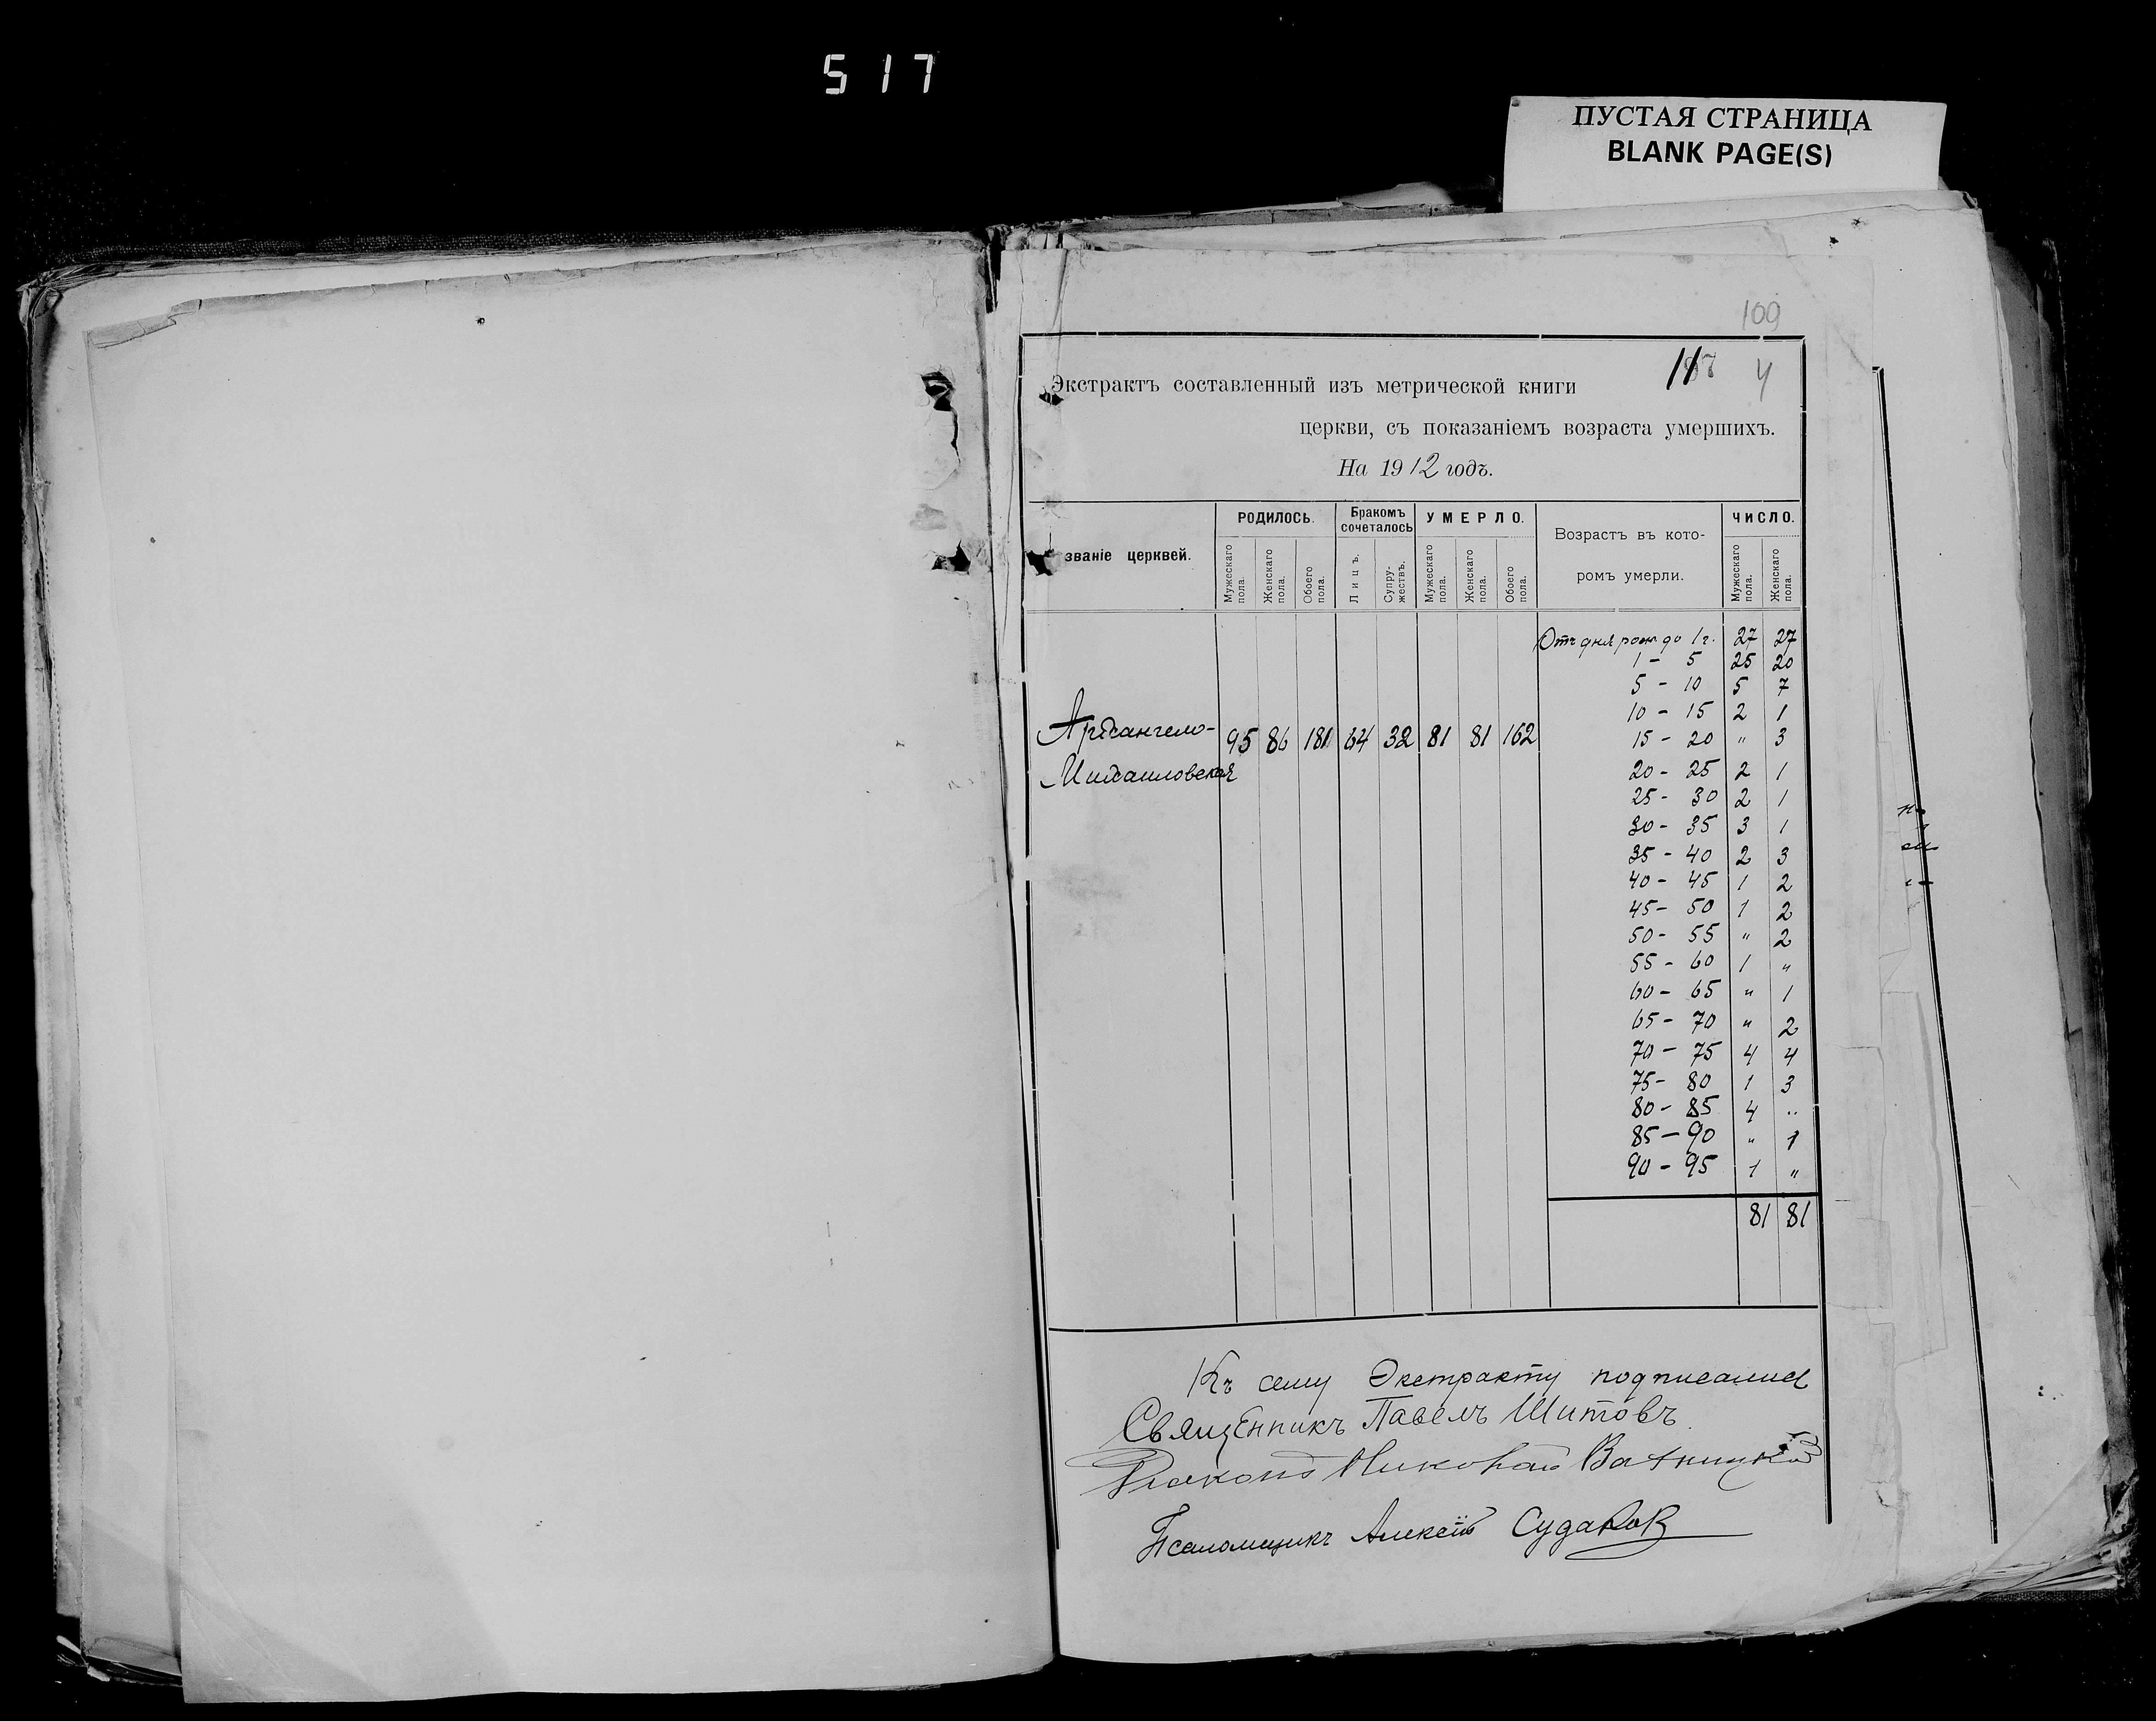 517
ПУСТАЯ СТРАНИЦА
BLANK PAGE(S)
109
4
Экстрактъ составленный изъ метрической книги
церкви, съ показаніемъ возраста умершихъ.
На 1912 годъ.
званіе церквей.
РОДИЛОСЬ.
Бракомъ сочеталось
УМЕРЛО.
Возрастъ въ кото-
ромъ умерли.
ЧИСЛО.
Мужескаго пола.
Женскаго пола.
Обоего пола.
Лицъ.
Супру-жествъ.
Мужескаго пола.
Женскаго пола.
Обоего пола.
Мужескаго пола.
Женскаго пола.
Отъ дня рожд до 1 г. 27 27
1 - 5 25 20
5 - 10 5 7
10 - 15 2 1
Архангело- 95 86 181 64 32 81 81 162
15 - 20 " 3
Михаиловская
20 - 25 2 1
25 - 30 2 1
30 - 35 3 1
35 - 40 2 3
40 - 45 1 2
45 - 50 1 2
50 - 55 " 2
55 - 60 1 "
60 - 65 " 1
65 - 70 " 2
70 - 75 4 4
75 - 80 1 3
80 - 85 4 "
85 - 90 " 1
90 - 95 1 "
81 81
Къ сему Экстракту подписались
Священникъ Павелъ Шитовъ
Діаконъ Николай
Псаломщикъ Алексѣй Судаков